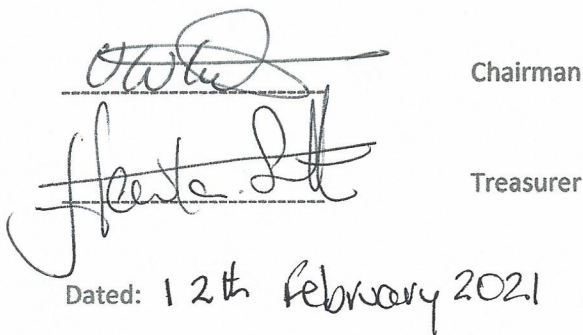 Chairman
Treasurer
Dated: 12th February 2021